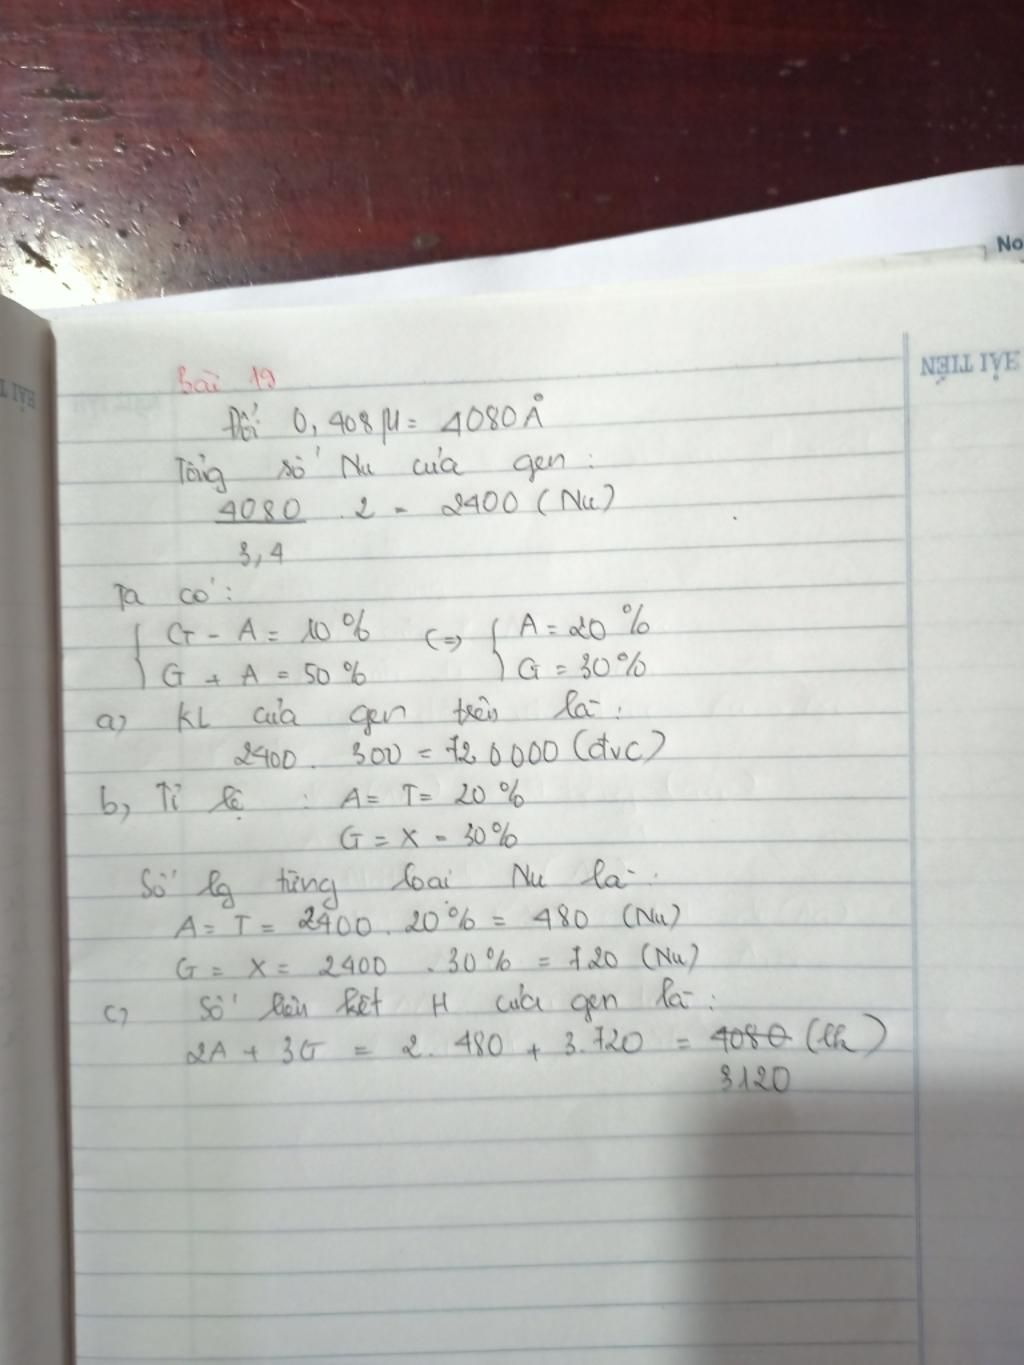 No
HẢI TIẾN
Bài 19
Đổi 0,408 μ = 4080 Å
Tổng số Nu của gen :
4080 . 2 = 2400 (Nu)
3,4
Ta có :
G - A = 10% <=> A = 20%
G + A = 50% G = 30%
a) KL của gen trên là :
2400 . 300 = 720000 (đvc)
b, Tỉ lệ : A = T = 20%
G = X = 30%
Số lg từng loại Nu là :
A = T = 2400 . 20% = 480 (Nu)
G = X = 2400 . 30% = 720 (Nu)
c) Số liên kết H của gen là :
2A + 3G = 2. 480 + 3.720 = 4080 (lk)
3120